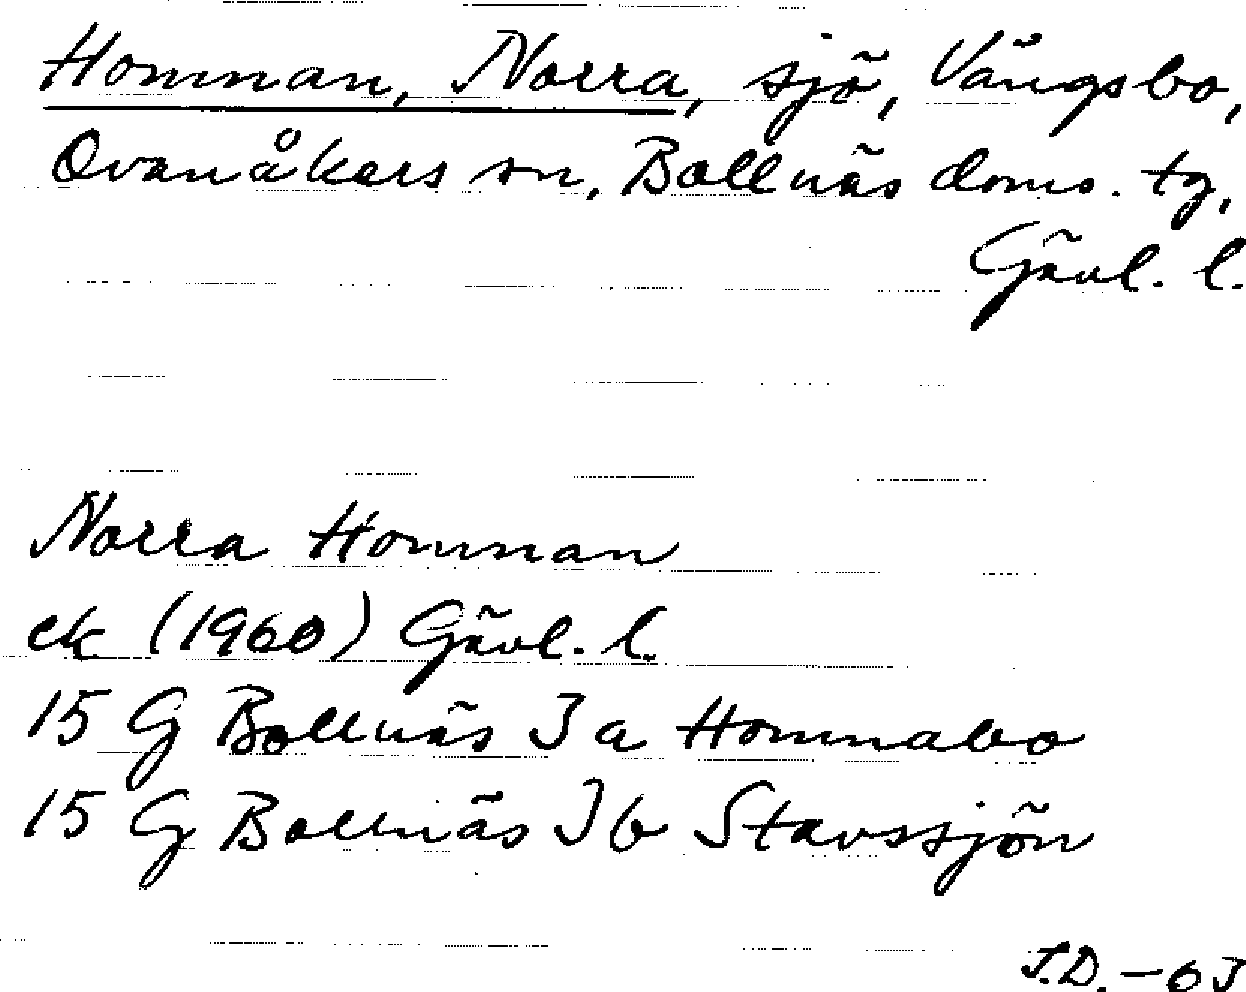 Homnan, Norra, sjö, Vängsbo,
Ovanåkers sn, Bollnäs doms. tg,
Gävl. l.
Norra Homnan
ek (1960) Gävl. l.
15 G Bollnäs 3 a Homnabo
15 G Bollnäs 3 b Stavssjön
S.D. -63